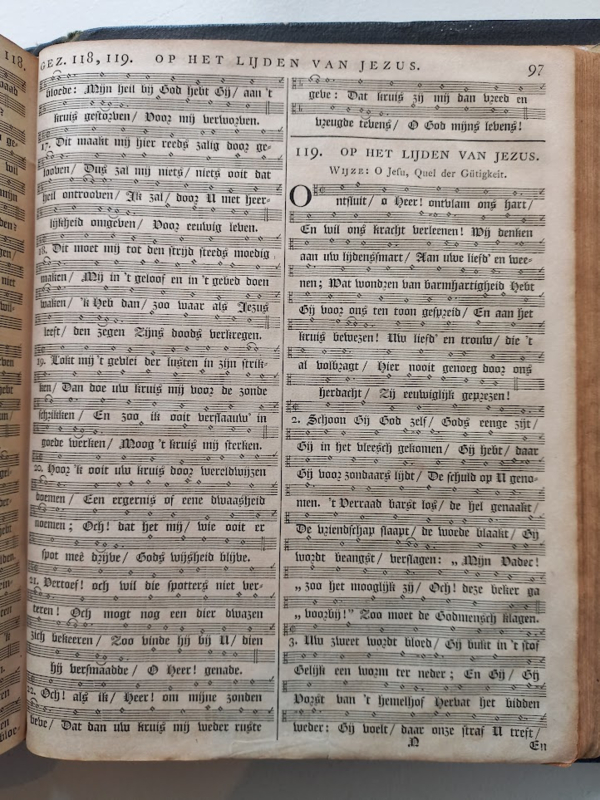 118.
GEZ. 118, 119. OP HET LIJDEN VAN JEZUS. 97
bloede: Mijn heil bij God hebt Gij/ aan 't
kruis gestorven/ Voor mij verworven.
17. Dit maakt mij hier reeds zalig door ge-
looven/ Dus zal mij niets/ niets ooit dat
heil ontrooven/ Ik zal/ door U met heer-
lijkheid omgeven/ Voor eeuwig leven.
18. Dit moet mij tot den strijd steeds moedig
maken/ Mij in 't geloof en in 't gebed doen
waken/ 'k Heb dan/ zoo waar als Jezus
leeft/ den zegen Zijns doods verkregen.
19. Lokt mij 't gevlei der lusten in zijn strik-
ken/ Dan doe uw kruis mij voor de zonde
schrikken/ En zoo ik ooit verflaauw' in
goede werken/ Moog 't kruis mij sterken.
20. Hoor 'k ooit uw kruis door wereldwijzen
doemen/ Een ergernis of eene dwaasheid
noemen; Och! dat het mij/ wie ooit er
spot meê drijve/ Gods wijsheid blijve.
21. Vertoef! och wil die spotters niet ver-
teren! Och mogt nog een dier dwazen
zich bekeeren/ Zoo vinde hij bij U/ dien
hij versmaadde/ O Heer! genade.
22. Och! als ik/ Heer! om mijne zonden
beve/ Dat dan uw kruis mij weder ruste
geve: Dat kruis zij mij dan vreed en
vreugde tevens/ O God mijns levens!
119. OP HET LIJDEN VAN JEZUS.
WIJZE: O Jesu, Quel der Gütigkeit.
Ontsluit/ o Heer! ontvlam ons hart/
En wil ons kracht verleenen! Wij denken
aan uw lijdenssmart/ Aan uwe liefd' en wee-
nen; Wat wondren van barmhartigheid Hebt
Gij voor ons ten toon gespreid/ En aan het
kruis bewezen! Uw liefd' en trouw/ die 't
al volbragt/ Hier nooit genoeg door ons
herdacht/ Zij eeuwiglijk geprezen!
2. Schoon Gij God zelf/ Gods eenge zijt/
Gij in het vleesch gekomen/ Gij hebt/ daar
Gij voor zondaars lijdt/ De schuld op U geno-
men. 't Verraad barst los/ de hel genaakt/
De vriendschap slaapt/ de woede blaakt/ Gij
wordt beangst/ verslagen: „ Mijn Vader!
„ zoo het mooglijk zij/ Och! deze beker ga
„ voorbij!" Zoo moet de Godmensch klagen.
3. Uw zweet wordt bloed/ Gij bukt in 't stof
Gelijk een worm ter neder; En Gij/ Gij
Vorst van 't hemelhof Hervat het bidden
weder: Gij voelt/ daar onze straf U treft/
N En